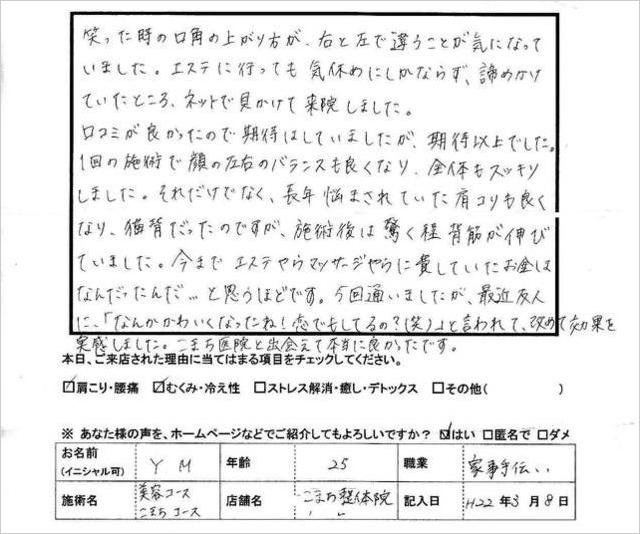 笑った時の口角の上がり方が、右と左で違うことが気になって
いました。エステに行っても気休めにしかならず、諦めかけ
ていたところ、ネットで見かけて来院しました。
口コミが良かったので期待はしていましたが、期待以上でした。
1回の施術で顔の左右のバランスも良くなり、全体もスッキリ
しました。それだけでなく、長年悩まされていた肩コリも良く
なり、猫背だったのですが、施術後は驚く程背筋が伸び
ていました。今までエステやらマッサージやらに費していたお金は
なんだったんだ…と思うほどです。5回通いましたが、最近友人
に、「なんかかわいくなったね!恋でもしてるの?(笑)」と言われて、改めて効果を
実感しました。こまち医院と出会えて本当に良かったです。
本日、ご来店された理由に当てはまる項目をチェックしてください。
☑肩こり・腰痛 ☑むくみ・冷え性 □ストレス解消・癒し・デトックス □その他( )
※ あなた様の声を、ホームページなどでご紹介してもよろしいですか? ☑はい □匿名で □ダメ
お名前 (イニシャル可) Y M 年齢 25 職業 家事手伝い
施術名 美容コース こまちコース 店舗名 こまち整体院 記入日 H22年3月8日